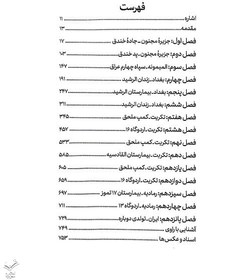 فهرست
اشاره ۱۱
مقدمه ۱۳
فصل اول: جزیرهٔ مجنون ـ جادهٔ خندق ۱۷
فصل دوم: جزیرهٔ مجنون ـ پد خندق ۱۰۳
فصل سوم: العماره ـ سپاه چهارم عراق ۱۴۷
فصل چهارم: بغداد ـ زندان الرشید ۱۹۱
فصل پنجم: بغداد ـ بیمارستان الرشید ۲۴۷
فصل ششم: بغداد ـ زندان الرشید ۳۱۱
فصل هفتم: تکریت ـ کمپ ملحق ۳۴۵
فصل هشتم: تکریت ـ اردوگاه ۱۶ ۴۵۷
فصل نهم: تکریت ـ کمپ ملحق ۵۳۳
فصل دهم: تکریت ـ بیمارستان القادسیه ۵۸۵
فصل یازدهم: تکریت ـ کمپ ملحق ۶۰۵
فصل دوازدهم: تکریت ـ اردوگاه ۱۶ ۶۵۹
فصل سیزدهم: رمادیه ـ بیمارستان ۱۷ تموز ۶۹۷
فصل چهاردهم: رمادیه ـ اردوگاه ۱۳ ۷۱۱
فصل پانزدهم: ایران ـ تولدی دوباره ۷۲۹
آشنایی با راوی ۷۴۹
اسناد و عکس‌ها ۷۵۳